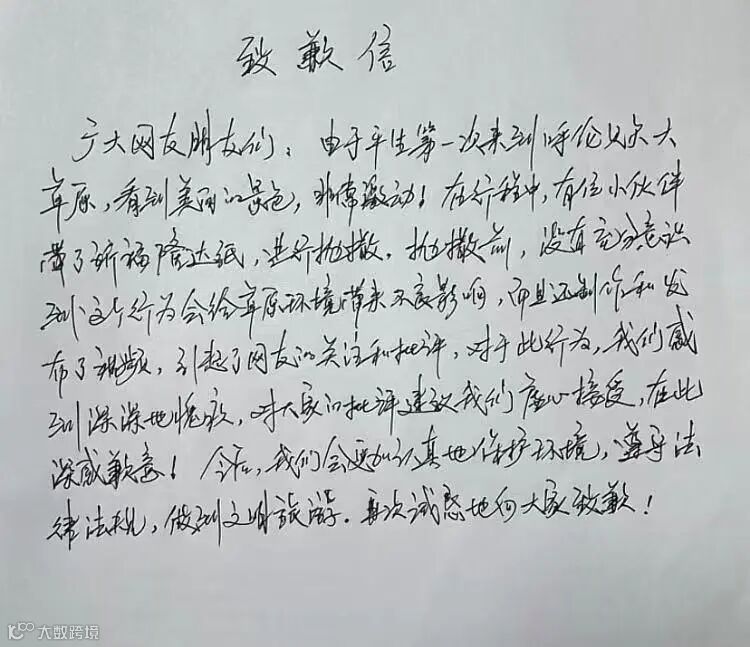 致歉信
广大网友朋友们：由于平生第一次来到呼伦贝尔大
草原，看到美丽的景色，非常激动！在行程中，有位小伙伴
带了祈福隆达纸，进行抛撒。抛撒前，没有充分意识
到这个行为会给草原环境带来不良影响，而且还制作和发
布了视频，引起了网友的关注和批评，对于此行为，我们感
到深深地愧疚，对大家的批评建议我们虚心接受，在此
深感歉意！今后，我们会更加认真地保护环境，遵守法
律法规，做到文明旅游。再次诚恳地向大家致歉！
10100 大数跨境